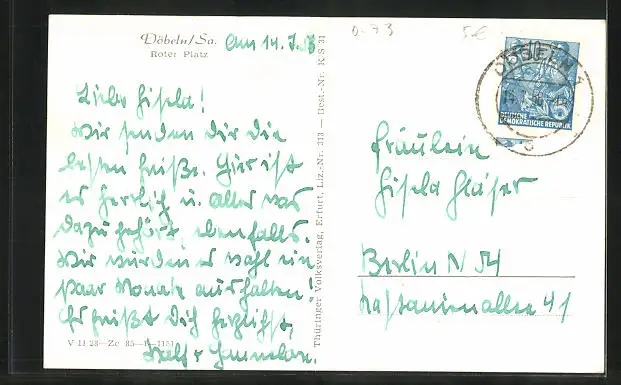 Döbeln/Sa.
Roter Platz
am 14.
Liebe Gisela!
Wir senden Dir die
besten Grüße. Hier ist
es herrlich u. alles was
dazu gehört, ebenfalls.
Wir würden es wohl ein
paar Monate aushalten!
Es grüßt Dich herzlichst,
V 11 28—Ze 85— 1151
Thüringer Volksverlag, Erfurt, Liz.-Nr. 313 — Best.-Nr. K S 31
5€
DÖBELN
DEUTSCHE
DEMOKRATISCHE REPUBLIK
Fräulein
Gisela Gläser
Berlin N 54
Kastanienallee 41